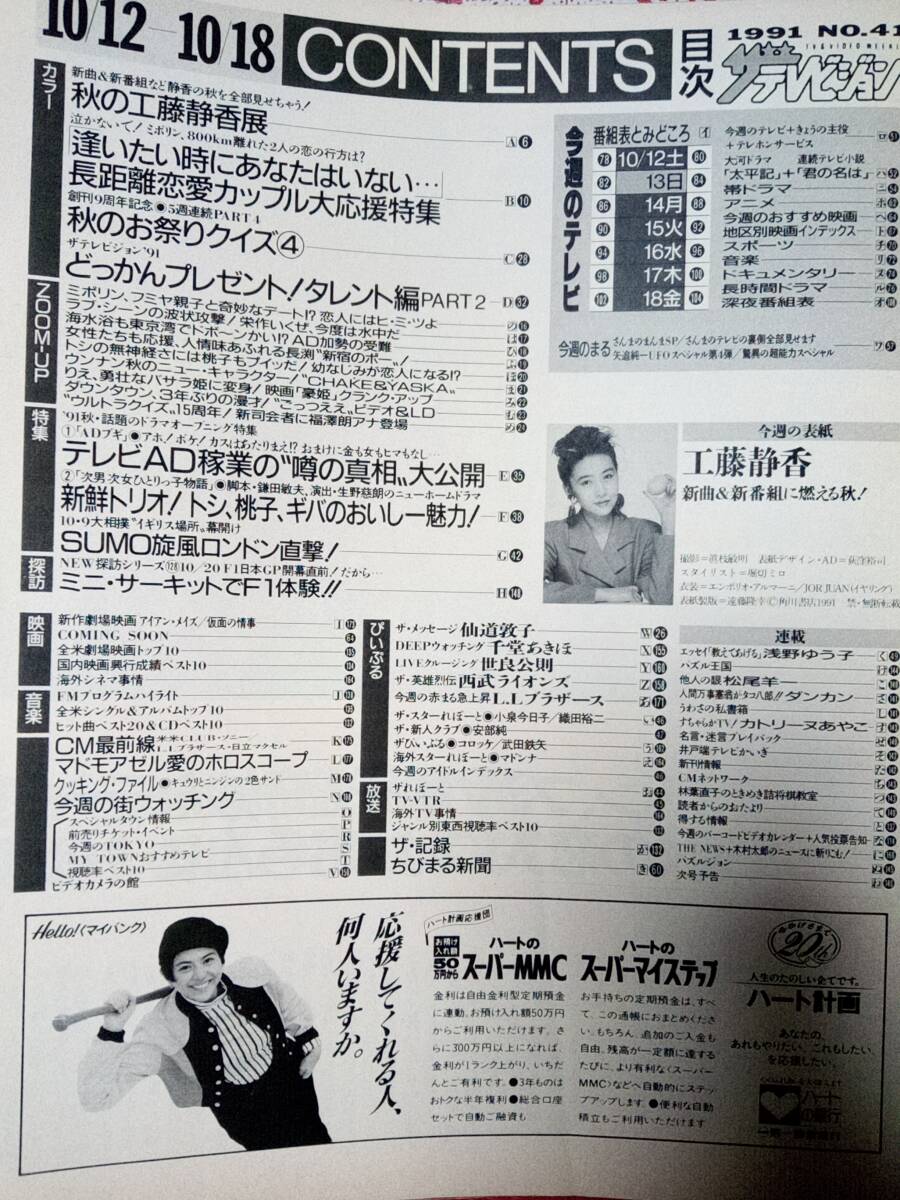 10/12—10/18
CONTENTS
目次
1991 NO.41
TV&VIDEO WEEKLY
ザテレビジョン
カラー
新曲&新番組など静香の秋を全部見せちゃう!
秋の工藤静香展
A 6
泣かないで!ミポリン、800km離れた2人の恋の行方は?
「逢いたい時にあなたはいない…」
長距離恋愛カップル大応援特集
B 10
創刊9周年記念●5週連続PART4
秋のお祭りクイズ④
C 28
ザテレビジョン'91
どっかんプレゼント!タレント編PART2
D 32
ZOOM-UP
ミポリン、フミヤ親子と奇妙なデート!?恋人にはヒ・ミ・ツよ
の 16
ラブ・シーンの波状攻撃!栄作いくぜ、今度は水中だ
は 17
海水浴も東京湾でドボーンかい!?AD加勢の受難
ひ 18
女性たちも応援、人情味あふれる長渕"新宿のボー"!
ふ 19
トシの無神経さには桃子もプイッだ!幼なじみが恋人になる!?
ほ 20
ウンナン秋のニュー・キャラクター!"CHAKE&YASKA"
ま 21
りえ、勇壮なバサラ姫に変身!映画「豪姫」クランク・アップ
み 22
ダウンタウン、3年ぶりの漫才!"ごっつええ"ビデオ&LD
む 23
"ウルトラクイズ"15周年!新司会者に福澤朗アナ登場
め 24
特集
'91秋・話題のドラマオープニング特集
①「ADブギ」●アホ!ボケ!カスはあたりまえ!?おまけに金も女もヒマもなし…
テレビAD稼業の"噂の真相"大公開
E 35
②「次男次女ひとりっ子物語」●脚本・鎌田敏夫、演出・生野慈朗のニューホームドラマ
新鮮トリオ!トシ、桃子、ギバのおいしー魅力!
F 38
10・9大相撲"イギリス場所"幕開け
SUMO旋風ロンドン直撃!
G 42
探訪
NEW探訪シリーズ(128)10/20F1日本GP開幕直前!だから…
ミニ・サーキットでF1体験!!
H 148
今週のテレビ
番組表とみどころ
イ
78 10/12土 80
82 13日 84
86 14月 88
90 15火 92
94 16水 96
98 17木 100
102 18金 104
今週のテレビ+きょうの主役
+テレホンサービス
ロ 51
大河ドラマ 連続テレビ小説
「太平記」+「君の名は」
ハ 52
帯ドラマ
ニ 54
アニメ
ホ 62
今週のおすすめ映画
ヘ 64
地区別映画インデックス
ト 67
スポーツ
チ 70
音楽
リ 72
ドキュメンタリー
ヌ 74
長時間ドラマ
ル 76
深夜番組表
オ 108
今週のまる
さんまのまんまSP/さんまのテレビの裏側全部見せます
矢追純一UFOスペシャル第4弾/驚異の超能力スペシャル
ワ 57
今週の表紙
工藤静香
新曲&新番組に燃える秋!
撮影=渡枝敏明 表紙デザイン・AD=荻窪裕司
スタイリスト=堀切ミロ
衣装=エンポリオ・アルマーニ/JORJUAN(イヤリング)
表紙製版=遠藤隆幸©角川書店1991 禁・無断転載
映画
新作劇場映画 アイアン・メイズ/仮面の情事
COMING SOON
全米劇場映画トップ10
国内映画興行成績ベスト10
海外シネマ情報
音楽
FMプログラムハイライト
全米シングル&アルバムトップ10
ヒット曲ベスト20&CDベスト10
CM最前線 米米CLUB・ソニー/
L.Lブラザース・日立マクセル
マドモアゼル愛のホロスコープ
クッキング・ファイル●キュウリとニンジンの2色サンド
今週の街ウォッチング
スペシャルタウン情報
前売りチケット・イベント
今週のTOKYO
MY TOWNおすすめテレビ
視聴率ベスト10
ビデオカメラの館
ぴいぷる
ザ・メッセージ 仙道敦子
W 26
DEEPウォッチング 千堂あきほ
X 155
LIVEクルージング 世良公則
Y 160
ザ・英雄烈伝 西武ライオンズ
Z 158
今週の赤まる急上昇 L.Lブラザース
あ 171
ザ・スターれぽーと●小泉今日子/織田裕二
い 46
ザ・新人クラブ●安部純
ザぴぃぷる●コロッケ/武田鉄矢
海外スターれぽーと●マドンナ
今週のアイドルインデックス
放送
ザれぽーと
TV-VTR
海外TV事情
ジャンル別東西視聴率ベスト10
ザ・記録
ちびまる新聞
き 60
連載
エッセイ「教えてあげる」浅野ゆう子
パズル王国
他人の眼 松尾羊一
人間万事塞翁がタコ八郎!!ダンカン
うわさの私書箱
すちゃらかTV!カトリーヌあやこ
名言・迷言プレイバック
井戸端テレビかいぎ
新刊情報
CMネットワーク
林葉直子のときめき詰将棋教室
読者からのおたより
得する情報
今週のバーコードビデオカレンダー+人気投票告知
THE NEWS+木村太郎のニュースに斬りこむ!
パズルジョン
次号予告
Hello!〈マイバンク〉
応援してくれる人、
何人いますか。
ハート計画応援団
お預け入れ額50万円から
ハートの
スーパーMMC
金利は自由金利型定期預金
に連動。お預け入れ額50万円
からご利用いただけます。さ
らに300万円以上になれば、
金利が1ランク上がり、いちだ
んとご有利です。●3年ものは
おトクな半年複利●総合口座
セットで自動ご融資も
ハートの
スーパーマイステップ
お手持ちの定期預金は、すべ
て、この通帳におまとめくださ
い。もちろん、追加のご入金も
自由。残高が一定額に達する
たびに、より有利な〈スーパー
MMC〉などへ自動的にステッ
プアップします。●便利な自動
積立もご利用いただけます
おかげさまで
20th
人生のたのしい企てです。
ハート計画
あなたの、
あれもやりたい、これもしたい、
を応援したい。
ハート
の銀行
第一勧業銀行